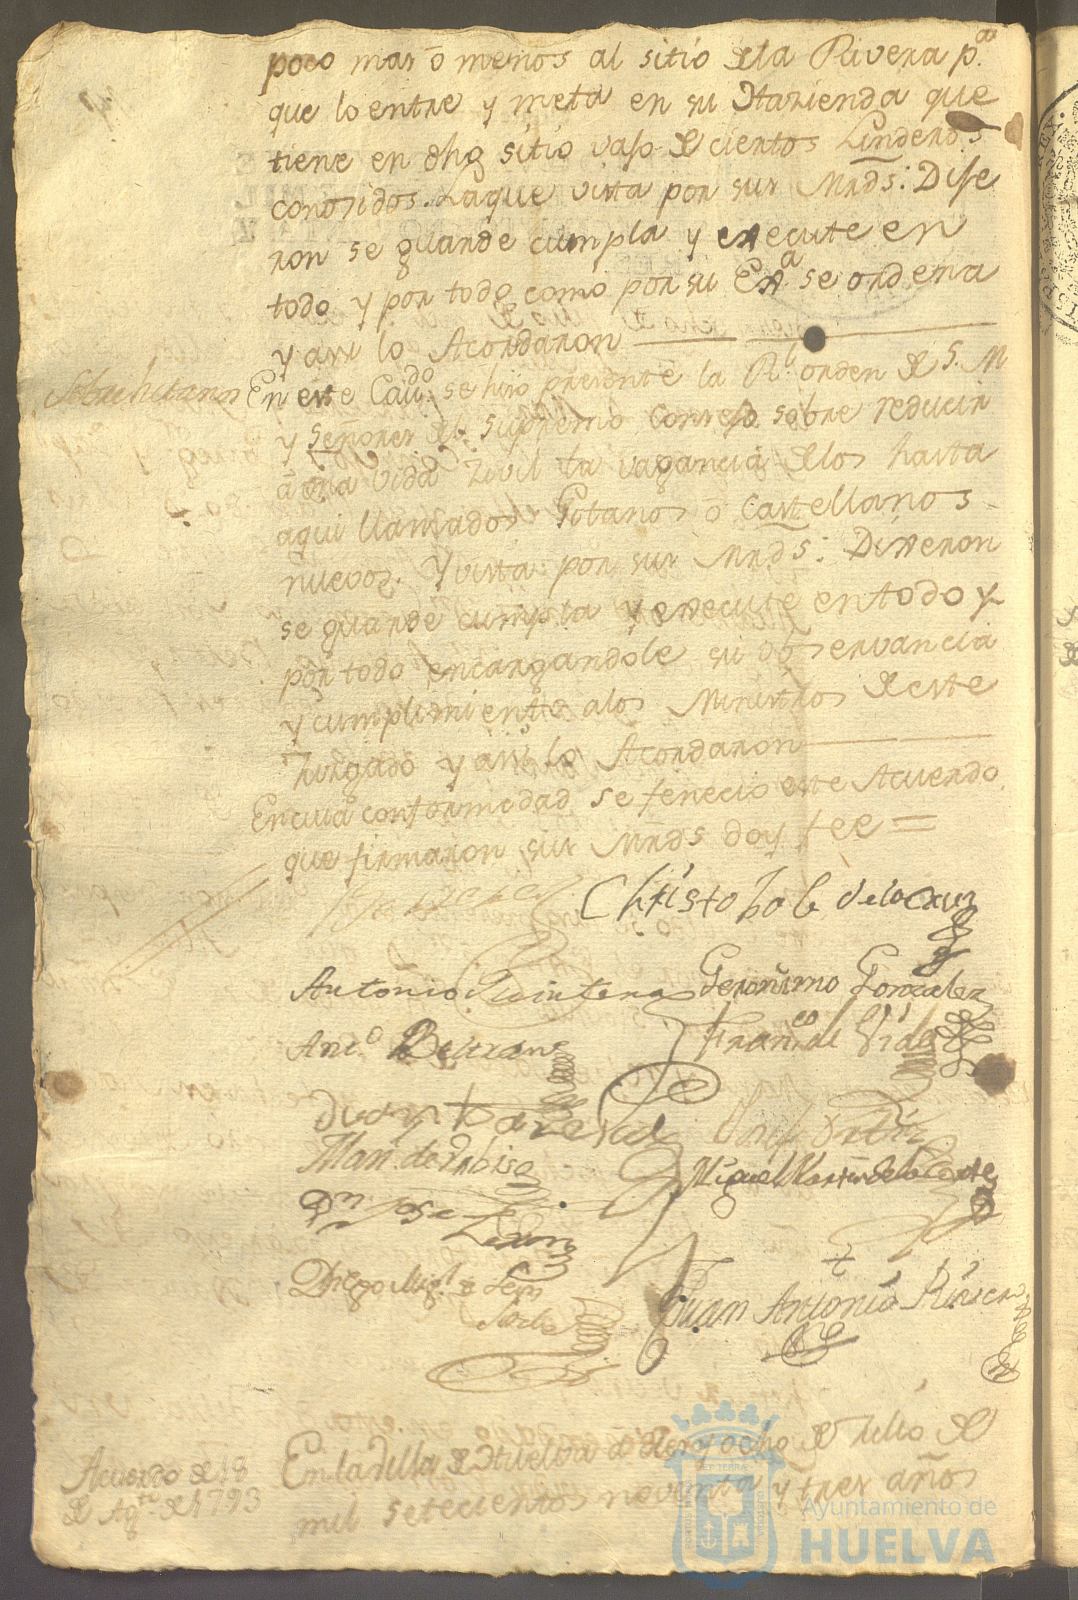 poco mas ó menos al sitio de la Rivera p.ª
que lo entre y meta en su Hazienda que
tiene en dho sitio vaso de ciertos Linderos
conozidos. La que vista por sus Mrds: Dise
ron se guarde cumpla y execute en
todo y por todo como por su Ex.ª se ordena
y assi lo Acordaron
Sobre hitanos
En este Cav.do se hizo presente la R.l orden de S. M
y Señores del Supremo Consejo sobre reducir
á vida Zivil la vagancia de los hasta
aqui llamados Gitanos ó Castellanos
nuevos. Y vista por sus Mrds: Dixeron
se guarde cumpla y execute en todo y
por todo encargandole su observancia
y cumplimiento a los Ministros de este
Juzgado y assi lo Acordaron
En cuia conformidad se fenecio este Acuerdo
que firmaron sus Mrds doy fee =
Christobal de la Cruz
Antonio Quintero
Geronimo Gonzalez
Ant.o Beltran
Fran.co del Vida
Josef Ortiz
Miguel Martin de la Corte
D.n Jose Leon
Diego Mig.l de
Juan Antonio Rivera
Acuerdo de 18
de Ag.to de 1793
En la villa de Huelva a diez y ocho de Julio de
mil setecientos noventa y tres años
Ayuntamiento de
HUELVA